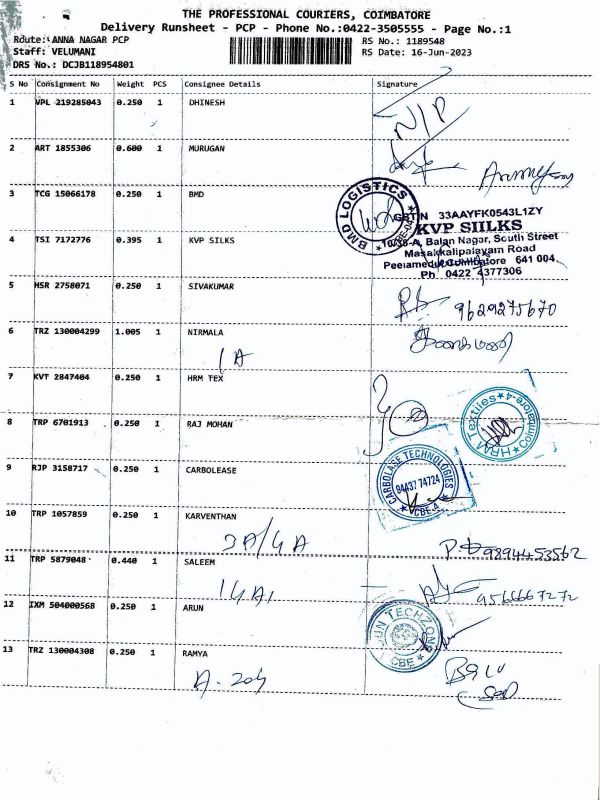 THE PROFESSIONAL COURIERS, COIMBATORE
Delivery Runsheet - PCP - Phone No.:0422-3505555 - Page No.:1
Route: ANNA NAGAR PCP RS No.: 1189548
Staff: VELUMANI RS Date: 16-Jun-2023
DRS No.: DCJB118954801
S No Consignment No Weight PCS Consignee Details Signature
1 VPL 219285043 0.250 1 DHINESH
N/P
2 ART 1855306 0.600 1 MURUGAN
3 TCG 15066178 0.250 1 BMD
BMD LOGISTICS
GSTIN 33AAYFK0543L1ZY
KVP SIILKS
4 TSI 7172776 0.395 1 KVP SILKS
10/36-A, Balan Nagar, Scuth Street
Masakkalipalayam Road
Peelamedu, Coimbatore 641 004
Ph 0422 4377306
5 HSR 2758071 0.250 1 SIVAKUMAR
9629275670
6 TRZ 130004299 1.005 1 NIRMALA
1A
7 KVT 2847404 0.250 1 HRM TEX
HRM Textiles Coimbatore-4
8 TRP 6701913 0.250 1 RAJ MOHAN
9 RJP 3158717 0.250 1 CARBOLEASE
CARBOLASE TECHNOLOGIES
94437 74724
CBE-4
10 TRP 1057859 0.250 1 KARVENTHAN
3A/4A
9894453562
11 TRP 5879048 0.440 1 SALEEM
9566667272
12 IXM 504000568 0.250 1 ARUN
UN TECHZON
CBE
13 TRZ 130004308 0.250 1 RAMYA
A. 204